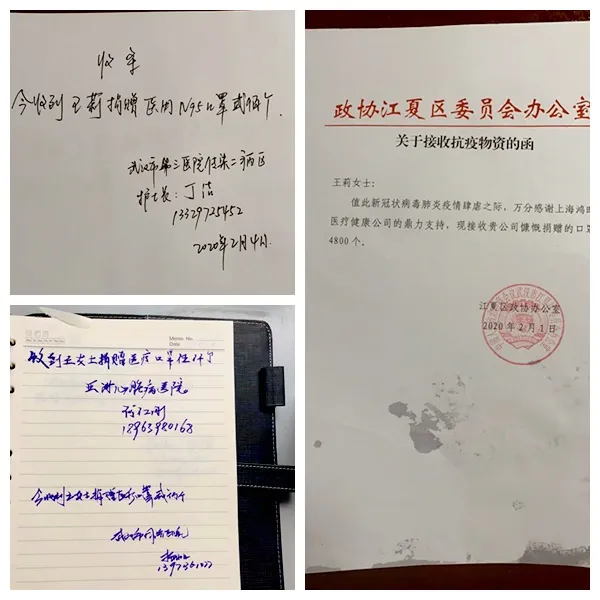 收条
今收到王莉捐赠医用N95口罩贰佰个.
武汉市第三医院传染二病区
护士长：丁洁
13329725452
2020年2月4日.
收到王女士捐赠医疗口罩
亚洲心脏病医院
18963980168
今收到王女士捐赠医疗口罩贰佰个
政协江夏区委员会办公室
关于接收抗疫物资的函
王莉女士：
值此新冠状病毒肺炎疫情肆虐之际，万分感谢上海鸿
医疗健康公司的鼎力支持，现接收贵公司慷慨捐赠的口罩
4800 个。
江夏区政协办公室
2020 年 2 月 1 日